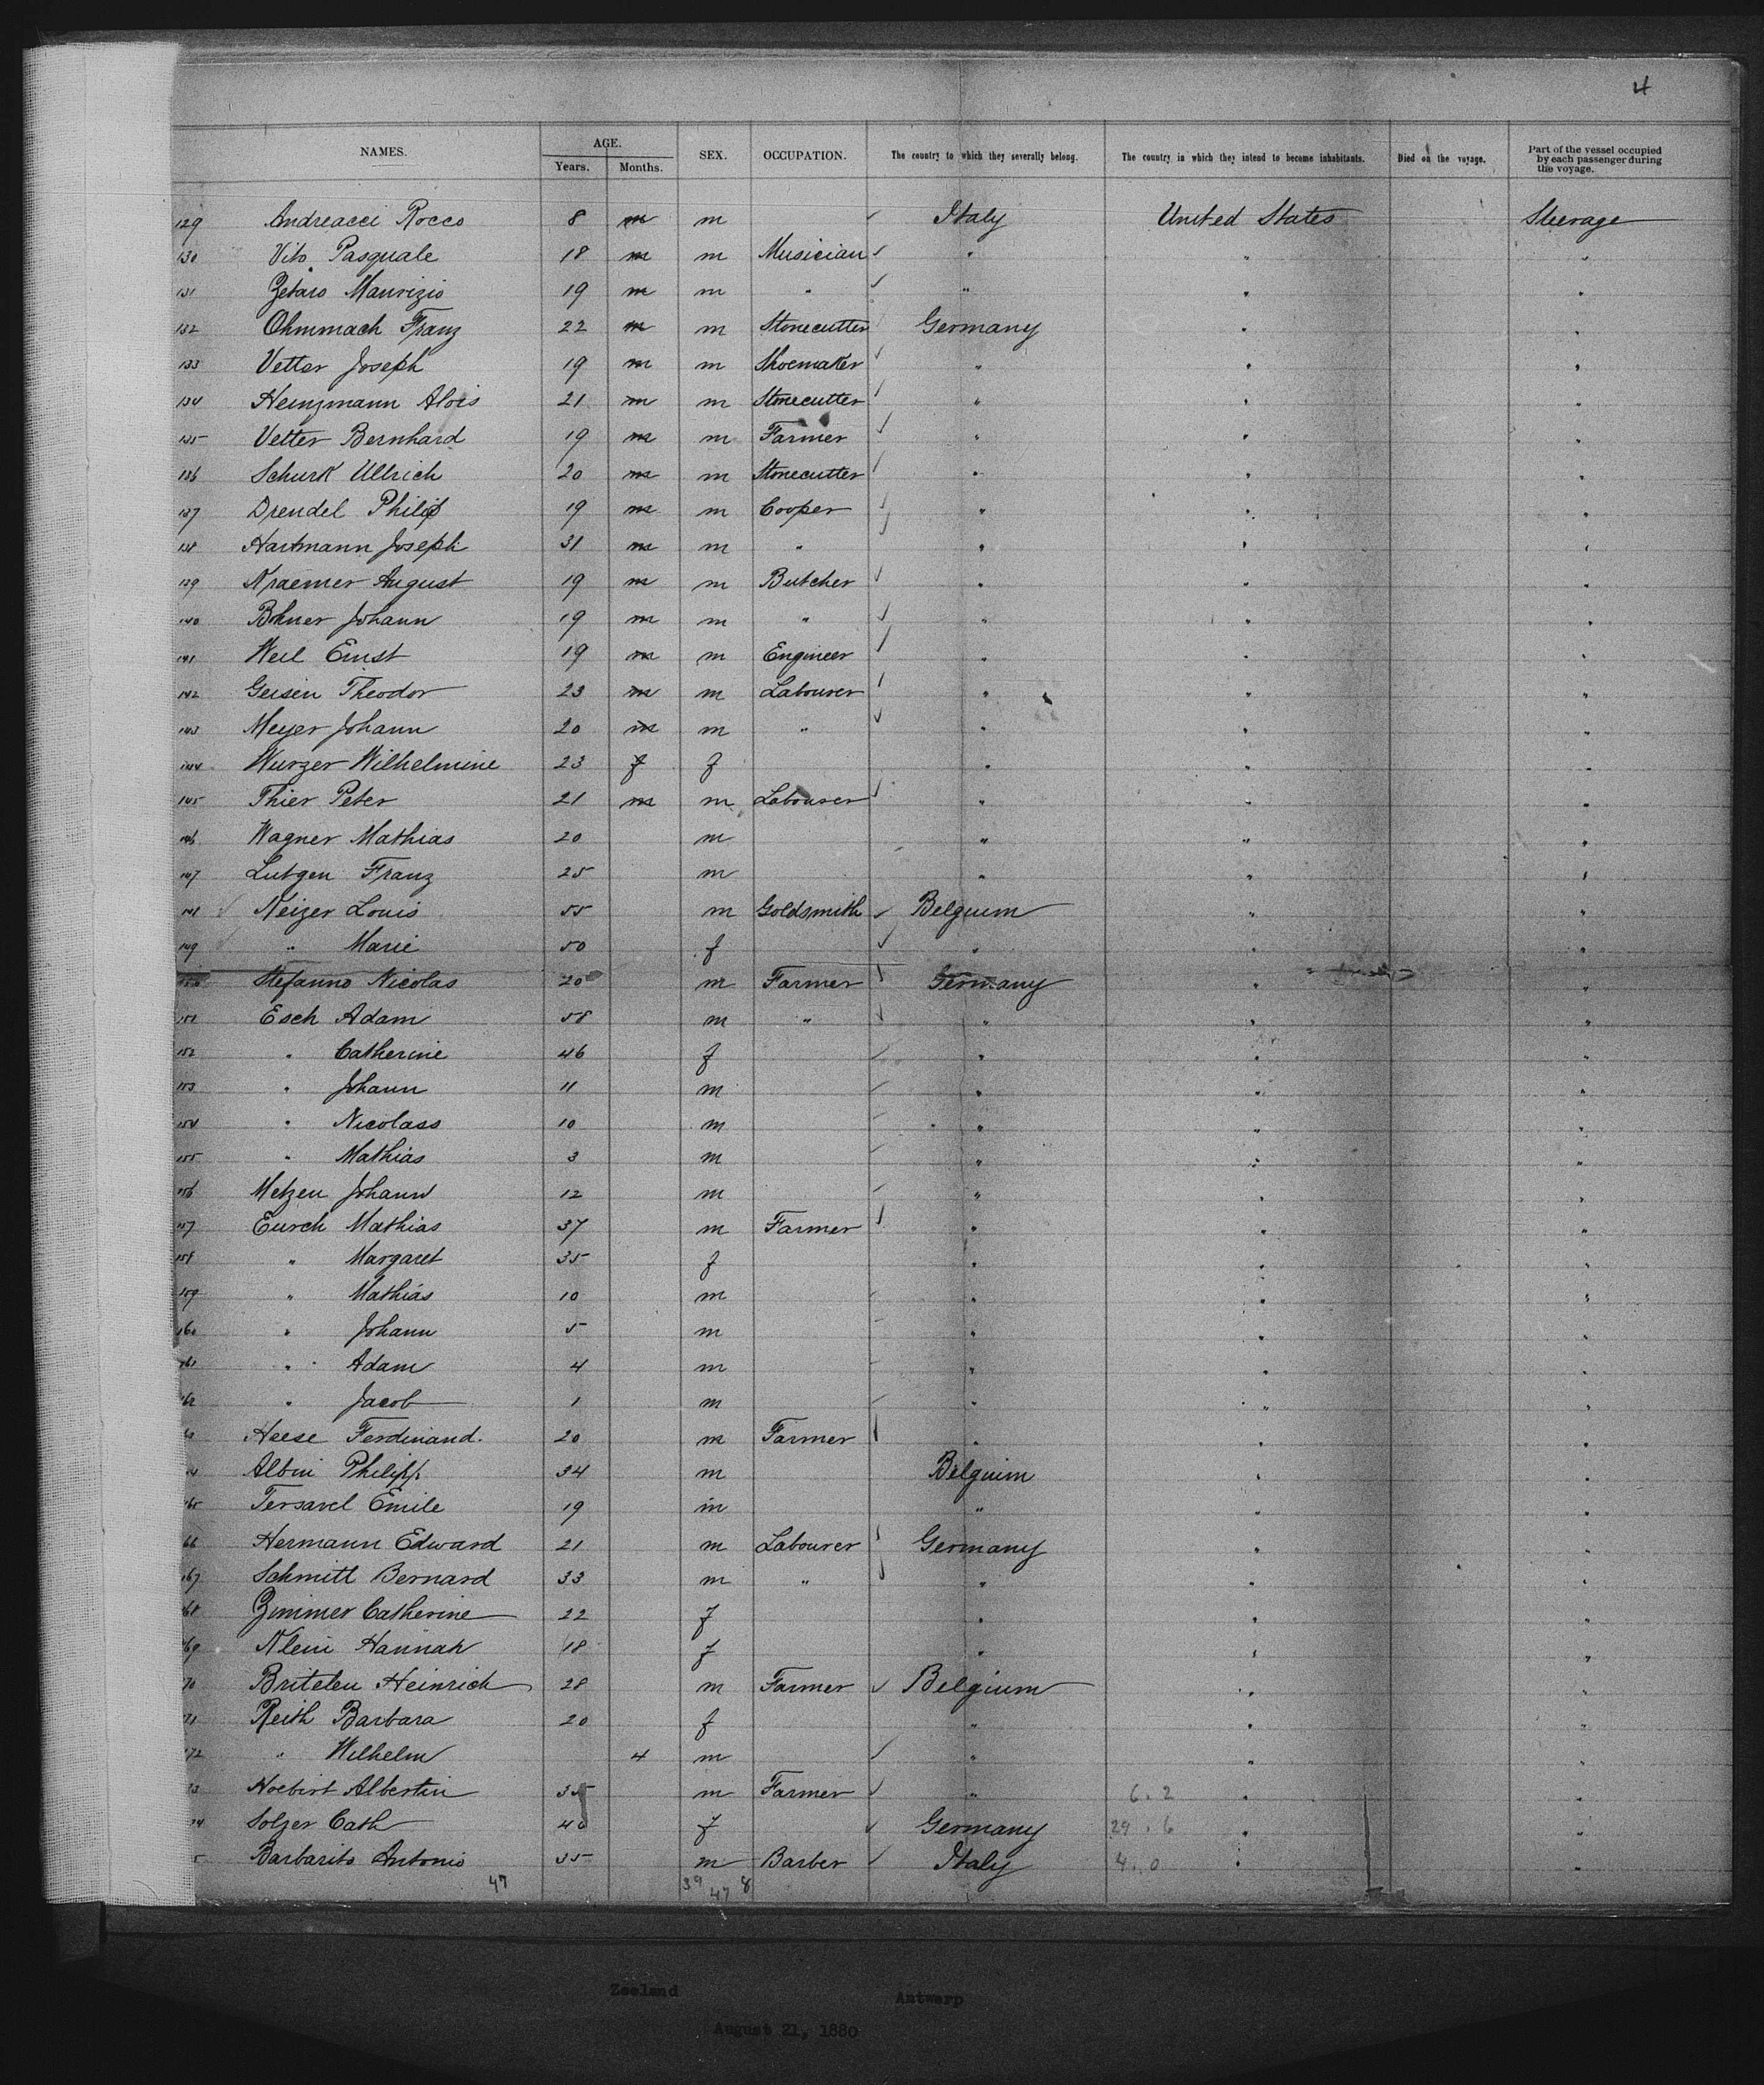 4
NAMES. AGE. SEX. OCCUPATION. The country to which they severally belong. The country in which they intend to become inhabitants. Died on the voyage. Part of the vessel occupied by each passenger during the voyage.
Years. Months.
129 Andreacci Rocco 8 m m Italy United States Steerage
130 Vito Pasquale 18 m m Musician " " "
131 Zetaro Maurizio 19 m m " " " "
132 Ohmmach Franz 22 m m Stonecutter Germany " "
133 Vetter Joseph 19 m m Shoemaker " " "
134 Heinzmann Alois 21 m m Stonecutter " " "
135 Vetter Bernhard 19 m m Farmer " " "
136 Schurk Ullrich 20 m m Stonecutter " " "
137 Drendel Philip 19 m m Cooper " " "
138 Hartmann Joseph 31 m m " " " "
139 Kraemer August 19 m m Butcher " " "
140 Bohner Johann 19 m m " " " "
141 Weil Ernst 19 m m Engineer " " "
142 Geisen Theodor 23 m m Labourer " " "
143 Meyer Johann 20 m m " " " "
144 Wurzer Wilhelmine 23 f f " " "
145 Thier Peter 21 m m Labourer " " "
146 Wagner Mathias 20 m " " "
147 Lutgen Franz 25 m " " "
148 Neizer Louis 55 m Goldsmith Belgium " "
149 " Marie 50 f " " "
150 Stefanno Nicolas 20 m Farmer Germany " "
151 Esch Adam 58 m " " " "
152 " Catherine 46 f " " "
153 " Johann 11 m " " "
154 " Nicolass 10 m " " "
155 " Mathias 3 m " " "
156 Metzen Johann 12 m " " "
157 Eurch Mathias 37 m Farmer " " "
158 " Margaret 35 f " " "
159 " Mathias 10 m " " "
160 " Johann 5 m " " "
161 " Adam 4 m " " "
162 " Jacob 1 m " " "
Heese Ferdinand. 20 m Farmer " " "
Albin Philipp 34 m Belgium " "
165 Tersavel Emile 19 m " " "
66 Hermann Edward 21 m Labourer Germany " "
167 Schmitt Bernard 33 m " " " "
168 Zimmer Catherine 22 f " " "
169 Klein Hannah 18 f " " "
170 Britelen Heinrich 28 m Farmer Belgium " "
171 Reith Barbara 20 f " " "
172 " Wilhelm 4 m " " "
Albertin 35 m Farmer " 6.2 " "
74 Solzer Cath 40 f Germany 29.6 " "
Barbarito Antonio 35 m Barber Italy 4.0 " "
47 39 47 8
Zeeland Antwerp
August 21, 1880